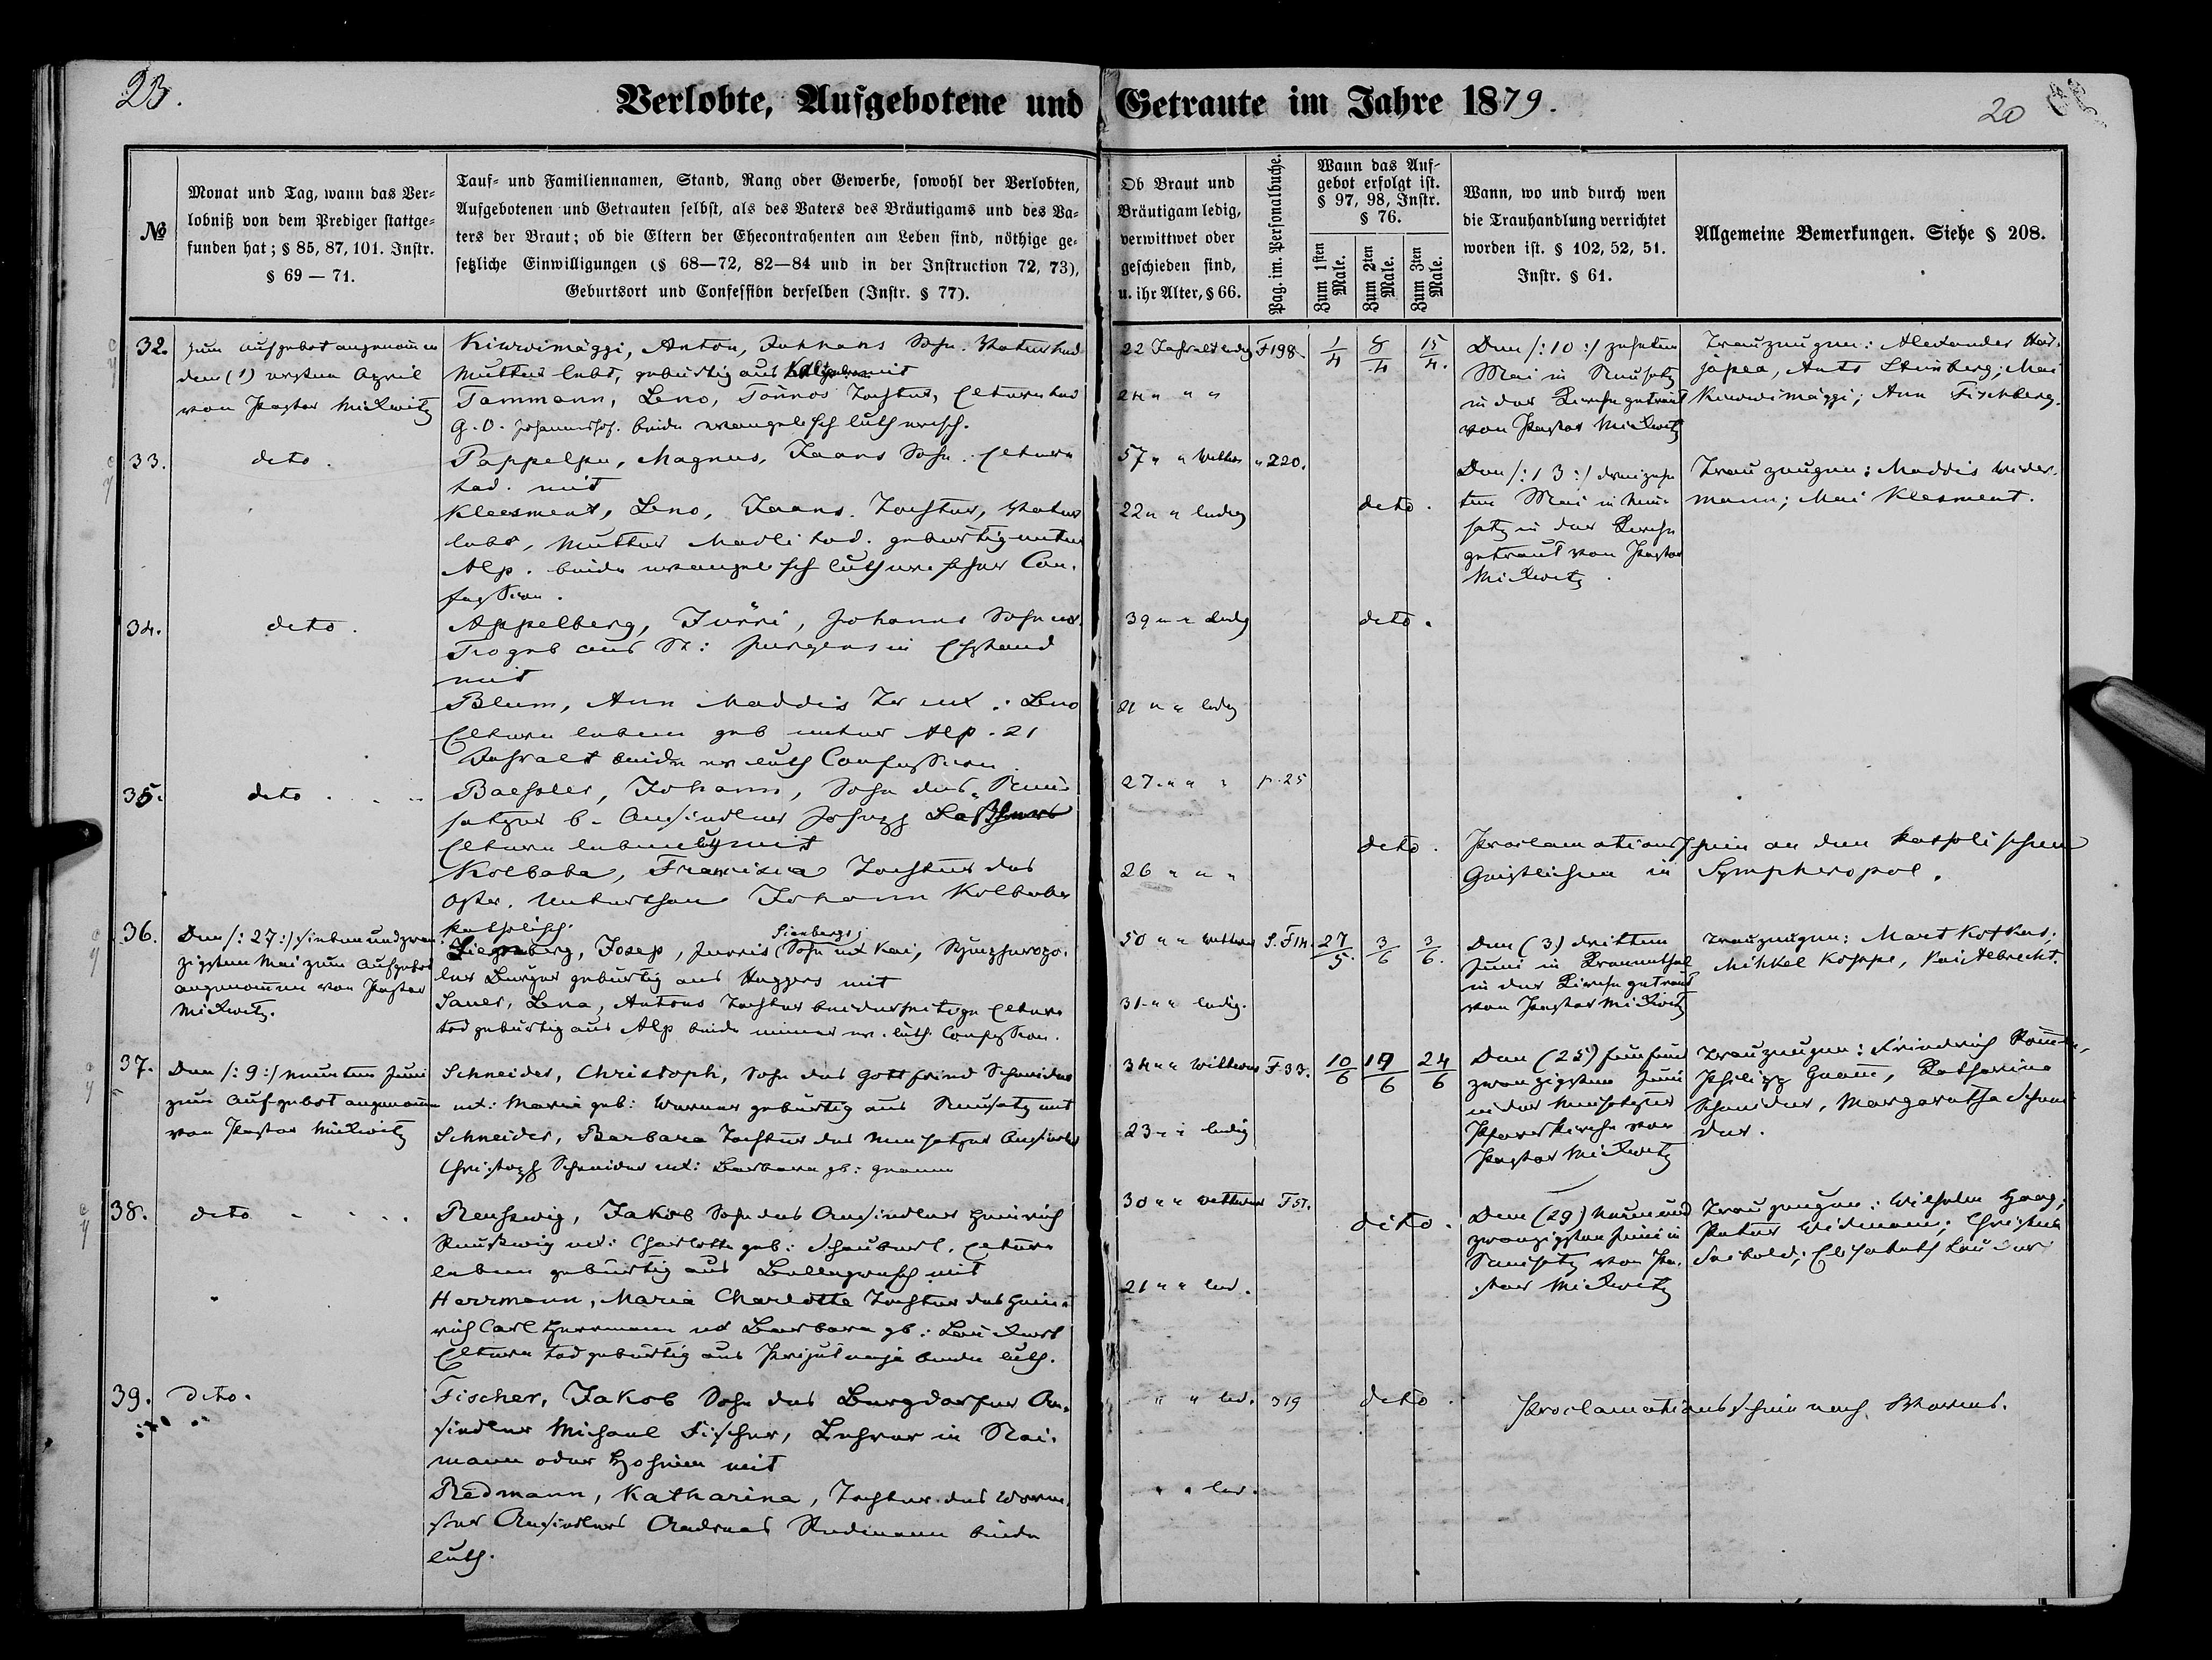 23.
Verlobte, Aufgebotene und Getraute im Jahre 1879.
20
№
Monat und Tag, wann das Ver-
lobniß von dem Prediger stattge-
funden hat; § 85, 87, 101. Instr.
§ 69 — 71.
Tauf- und Familiennamen, Stand, Rang oder Gewerbe, sowohl der Verlobten,
Aufgebotenen und Getrauten selbst, als des Vaters des Bräutigams und des Va-
ters der Braut; ob die Eltern der Ehecontrahenten am Leben sind, nöthige ge-
setzliche Einwilligungen (§ 68—72, 82—84 und in der Instruction 72, 73),
Geburtsort und Confession derselben (Instr. § 77).
Ob Braut und
Bräutigam ledig,
verwittwet oder
geschieden sind,
u. ihr Alter, § 66.
Pag. im. Personalbuche.
Wann das Auf-
gebot erfolgt ist.
§ 97, 98, Instr.
§ 76.
Zum 1sten
Male.
Zum 2ten
Male.
Zum 3ten
Male.
Wann, wo und durch wen
die Trauhandlung verrichtet
worden ist. § 102, 52, 51.
Instr. § 61.
Allgemeine Bemerkungen. Siehe § 208.
32.
zum Aufgebot angenommen
den (1) ersten April
von Pastor Mickwitz
Kiwwimäggi, Anton, Johanns Sohn. Vater tod
Mutter lebt, gebürtig aus mit
Tammann, Leno, Tönnos Tochter, Eltern tod
G. O. Johannshof. beide evangelisch lutherisch.
22 Jahr alt ledig
24 " " "
F198
1/4 8/4 15/4.
Den /:10:/ zehnten
Mai in Neusatz
in der Kirche getraut
von Pastor Mickwitz
Trauzeugen: Alexander
Ants Steinberg; Mai
Kiwwimäggi; Ann Fischberg.
33.
deto.
Pappelpu, Magnus, Jaans Sohn. Eltern
tod. mit
Kleesment, Leno, Jaans. Tochter, Vater
lebt, Mutter Madli tod. gebürtig unter
Alp. beide evangelisch lutherischer Con-
fession.
57 " " Wittwer
22 " " ledig
" 220.
deto.
Den /:13:/ dreizehn
ten Mai in Neu-
satz in der Kirche
getraut von Pastor
Mickwitz.
Trauzeugen: Maddis Wider-
mann; Mai Klesment.
34.
deto.
Appelberg, Jürri, Johanns Sohn ux.
Tio geb aus St: Jürgens in Ehstland
mit
Blum, Ann Maddis Tr ux.: Leno
Eltern leben geb unter Alp. 21
Jahr alt beide ev luth Confession
39 " " ledig
21 " " ledig
deto.
35.
deto
Baessler, Johann, Sohn des Neu-
satzer b. Ansiedlers Joseph
Eltern leben mit
Kolbaba, Francisca Tochter des
öster. Unterthan Johann Kolbaba
katholisch.
27. " " "
26 " " "
p. 25
deto.
Proclamationsschein an den katholischen
Geistlichen in Sympheropol.
36.
Den /:27:/ siebenundzwan-
zigsten Mai zum Aufgebot
angenommen von Pastor
Mickwitz.
Siegenberg, Josep, Jurris Sohn ux Kai, Sympheropo-
ler Bürger gebürtig aus Haggers mit
Saner, Lena, Antons Tochter beiderseitige Eltern
tod gebürtig aus Alp beide ev. luth. Confession.
50 " " Wittwer
31 " " ledig.
S. F14.
27/5. 3/6 3/6.
Den (3) dritten
Juni in Kronenthal
in der Kirche getraut
von Pastor Mickwitz
Trauzeugen: Mart Kotkas;
Mihkel Koppe, Kai Albrecht.
37.
Den /:9:/ neunten Juni
zum Aufgebot angenommen
von Pastor Mickwitz
Schneider, Christoph, Sohn des Gottfried Schneider
ux: Maria geb: Werner gebürtig aus Neusatz mit
Schneider, Barbara Tochter des Neusatzer Ansiedler
Christoph Schneider ux: Barbara gb: Gramm
34 " " Wittwer
23 " " ledig
F 33.
10/6 19/6 24/6
Den (25) fünfund
zwanzigsten Juni
in der Neusatzer
Pfarrkirche von
Pastor Mickwitz
Trauzeugen: Friedrich
Philipp Gramm, Katharina
Schneider, Margaretha Schnei
der.
38.
deto
Renschwig, Jakob Sohn des Ansiedlers Heinrich
ux: Charlotte geb: Schaubert, Eltern
leben gebürtig aus mit
Herrmann, Maria Charlotte Tochter des Hein-
rich Carl Herrmann ux Barbara gb:
Eltern tod gebürtig aus beide luth.
30 " " Wittwer
21 " " led.
F 57.
deto.
Den (29) neunund
zwanzigsten Juni in
Neusatz von Pa-
stor Mickwitz
Trauzeugen: Wilhelm Haag;
Peter Widmann; Christina
Seibold; Elisabeth
39.
Deto.
Fischer, Jakob Sohn des Burgdorfer An-
siedlers Michael Fischer, Lehrer in Rai-
mann oder mit
Redmann, Katharina, Tochter des
Ansiedlers Andreas Redmann beide
luth.
" " led.
" " led.
319
deto.
Proclamationsschein nach